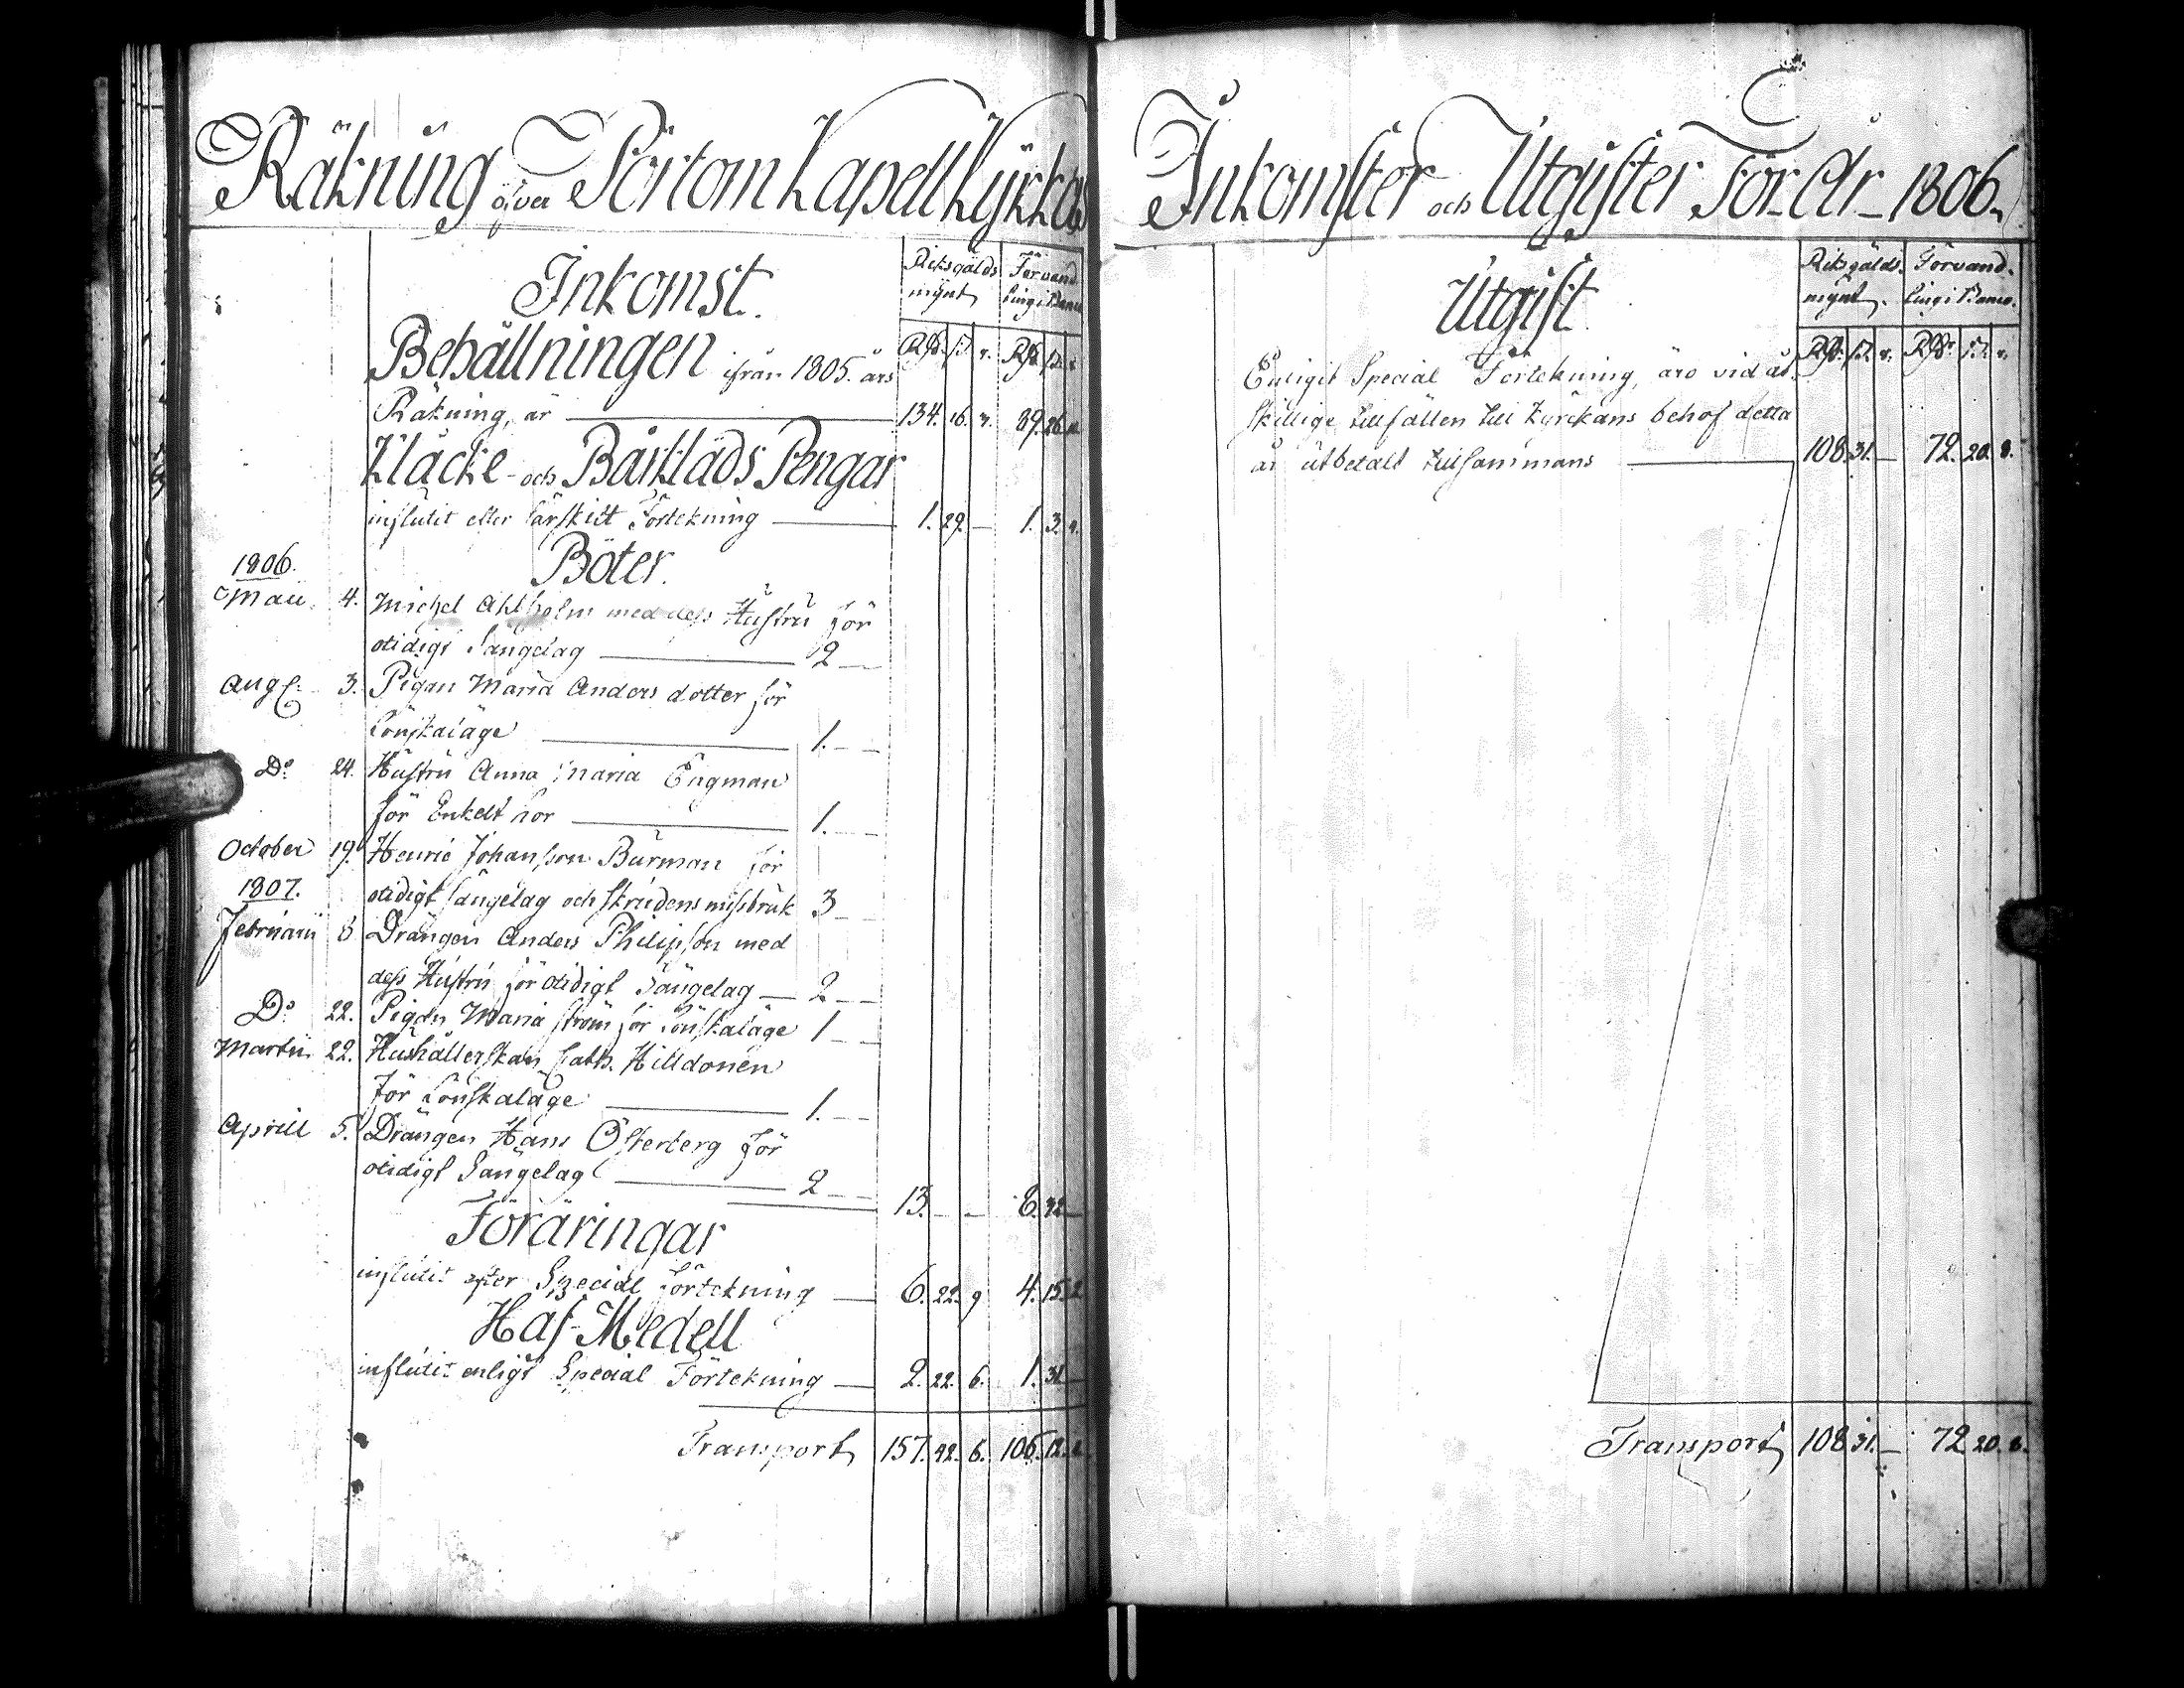 Räkning öfver Pörtom Kapell Kyrkas
Inkomst.
Riksgälds mynt, Förvand-
ling i Banco
Rdr. ß. r. Rdr. ß. r.
Behållningen ifrån 1805. års
Räkning, är 134. 16. 3. 89. 26.
Klåcke- och Bårkläds Pengar
influtit efter särskilt Förtekning 1. 29. — 1. 3. 4.
1806. Böter.
Maii. 4. Michel Ahlholm med dess Hustru för
otidigt Sängelag 2 —
Aug. 3. Pigan Maria Anders dotter för
Lönskaläge 1. —
Do. 24. Hustru Anna Maria Engman
för Enkelt hor 1. —
October 19. Henric Johansson Burman för
1807. otidigt sängelag och Skrudens missbruk 3 —
Februarii 8 Drängen Anders Philipson med
dess Hustru för otidigt Sängelag — 2 —
Do. 22. Pigan Maria Ström för Lönskaläge 1 —
Martii 22. Hushållerskan Cath. Hilldonen
för Lönskaläge 1. —
Aprill 5. Drängen Hans Österberg för
otidigt Sängelag 2 — 13. — — 8. 32 —
Föräringar
influtit efter Special Förtekning — 6. 22. 9 4. 15. 2
Haf-Medell
influtit enligt Special Förtekning — 2. 22. 6. 1. 31 —
Transport 157. 42. 6. 105. 12.
Inkomster och Utgifter För År 1806.
Utgift.
Riksgälds- mynt. Förvand-
ling i Banco.
Rdr. ß. r. Rdr. ß. r.
Enligit Special Förtekning, äro vid åt-
skillige tillfällen till Kyrckans behof detta
år utbetalt tillsammans — 108. 31. — 72. 20. 8.
Transport 108 31. — 72 20. 8.